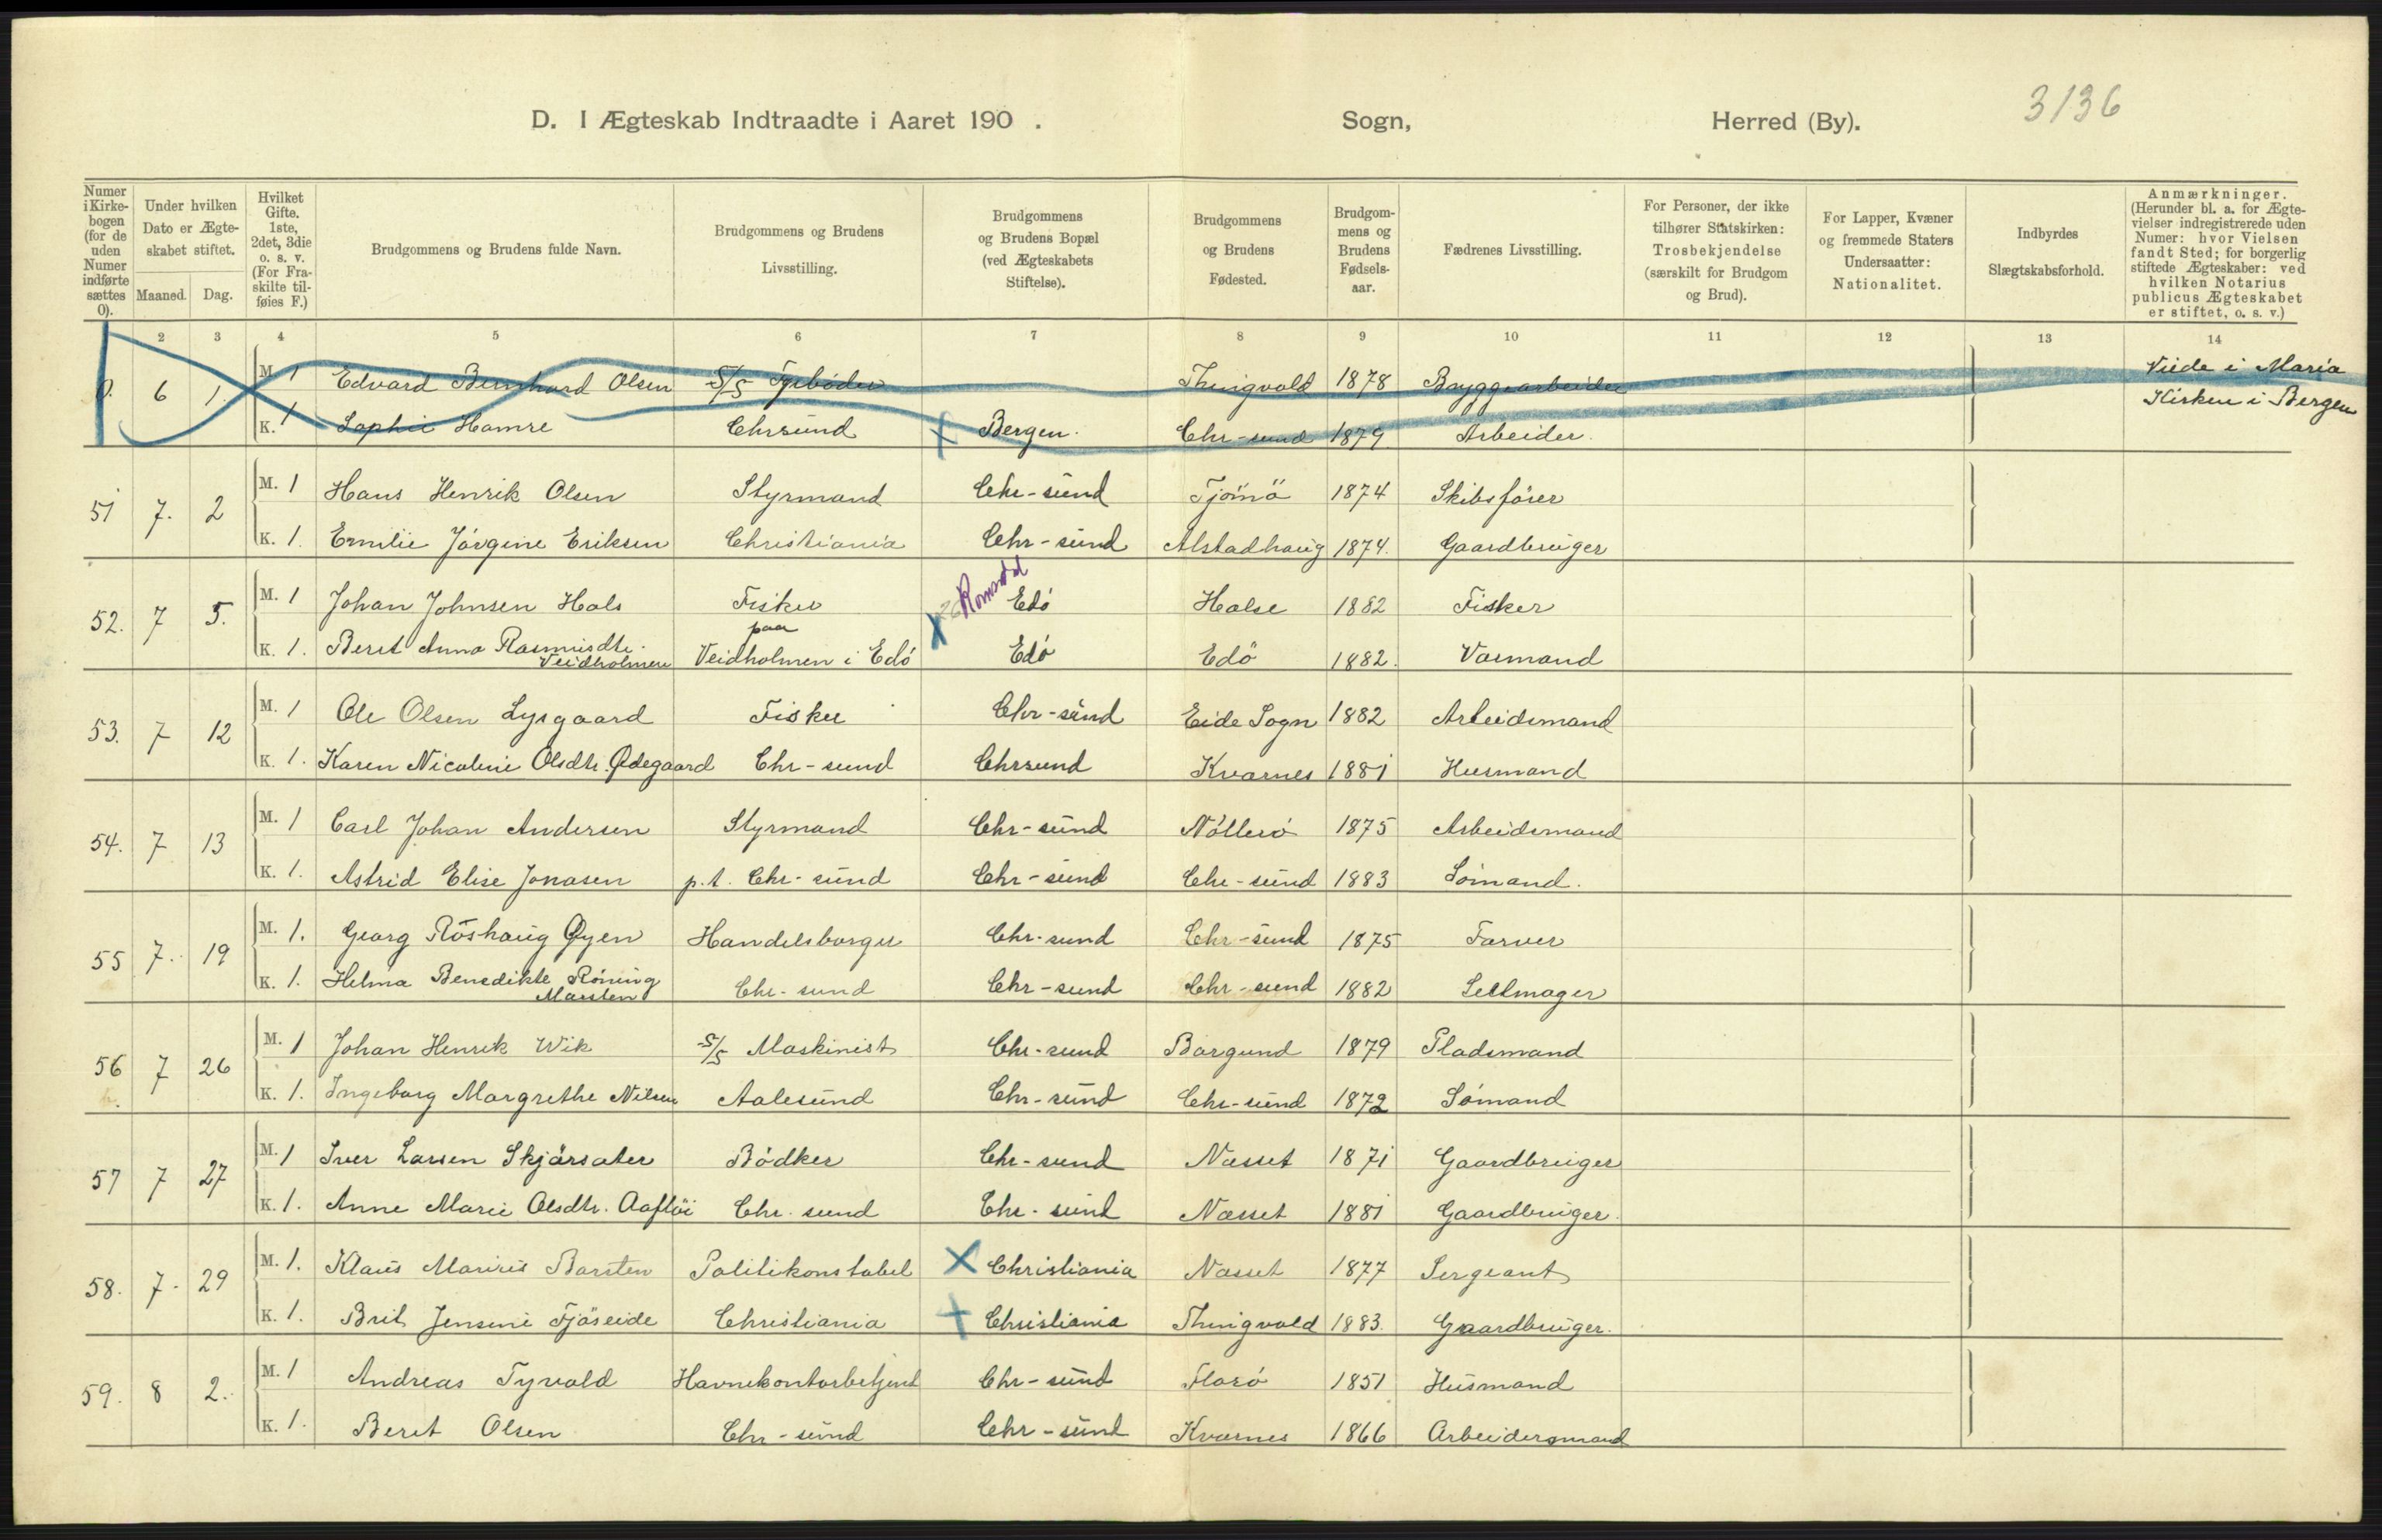 3136
D. I Ægteskab Indtraadte i Aaret 190 . Sogn, Herred (By).
Numer i Kirkebogen (for de uden Numer indførte sættes 0).
Under hvilken Dato er Ægteskabet stiftet.
Maaned. Dag.
Hvilket Gifte. 1ste, 2det, 3die o. s. v. (For Fraskilte tilføies F.)
Brudgommens og Brudens fulde Navn.
Brudgommens og Brudens Livsstilling.
Brudgommens og Brudens Bopæl (ved Ægteskabets Stiftelse).
Brudgommens og Brudens Fødested.
Brudgommens og Brudens Fødselsaar.
Fædrenes Livsstilling.
For Personer, der ikke tilhører Statskirken: Trosbekjendelse (særskilt for Brudgom og Brud).
For Lapper, Kvæner og fremmede Staters Undersaatter: Nationalitet.
Indbyrdes Slægtskabsforhold.
Anmærkninger. (Herunder bl. a. for Ægtevielser indregistrerede uden Numer: hvor Vielsen fandt Sted; for borgerlig stiftede Ægteskaber: ved hvilken Notarius publicus Ægteskabet er stiftet, o. s. v.)
2 3 4 5 6 7 8 9 10 11 12 13 14
0. 6 1. M. 1 Edvard Bernhard Olsen S/S Fyrböder Thingvold 1878 Bryggearbeider Viede i Maria
K. 1 Sophie Hamre Chrsund Bergen. Chr-sund 1879 Arbeider. Kirken i Bergen
51 7. 2 M. 1 Hans Henrik Olsen Styrmand Chr-sund Tjömö 1874 Skibsförer
K. 1. Emilie Jörgine Eriksen Christiania Chr-sund Alstadhaug 1874. Gaardbruger
52. 7 5. M. 1 Johan Johnsen Hals Fisker Romsdal Edö Halse 1882 Fisker
K. 1. Beret Anna Rasmusdtr. Veidholmen paa Veidholmen i Edö Edö Edö 1882. Vaermand
53. 7 12 M. 1 Ole Olsen Lysgaard Fisker Chr-sund Eide Sogn 1882 Arbeidsmand
K. 1. Karen Nicoline Olsdtr. Ødegaard Chr-sund Chrsund Kvarnes 1881 Husmand
54. 7 13 M. 1 Carl Johan Andersen Styrmand Chr-sund Nötterö 1875 Arbeidsmand
K. 1. Astrid Elise Jonasen p.t. Chr-sund Chr-sund Chr-sund 1883 Sömand.
55 7. 19 M. 1. Georg Röshaug Øyen Handelsborger Chr-sund Chr-sund 1875 Farver
K. 1. Helma Benedikte Röning Marsten Chr-sund Chr-sund Chr-sund 1882 Selmager
56 7 26 M. 1 Johan Henrik Wik S/S Maskinist Chr-sund Borgund 1879 Pladsmand
K. 1. Ingeborg Margrethe Nilsen Aalesund Chr-sund Chr-sund 1872 Sömand
57 7 27 M. 1 Iver Larsen Skjärsater Bödker Chr-sund Næsset 1871 Gaardbruger
K. 1. Anne Marie Olsdtr. Aaflöi Chr-sund Chr-sund Næsset 1881 Gaardbruger.
58. 7. 29 M. 1. Klaus Marius Barsten Politikonstabel Christiania Næsset 1877 Sergeant
K. 1. Brit Jensine Fjöseide Christiania Christiania Thingvold 1883. Gaardbruger.
59. 8 2. M. 1 Andreas Tyvold Havnekontorbetjent Chr-sund Florö 1851 Husmand
K. 1. Beret Olsen Chr-sund Chr-sund Kvarnes 1866 Arbeidersmand